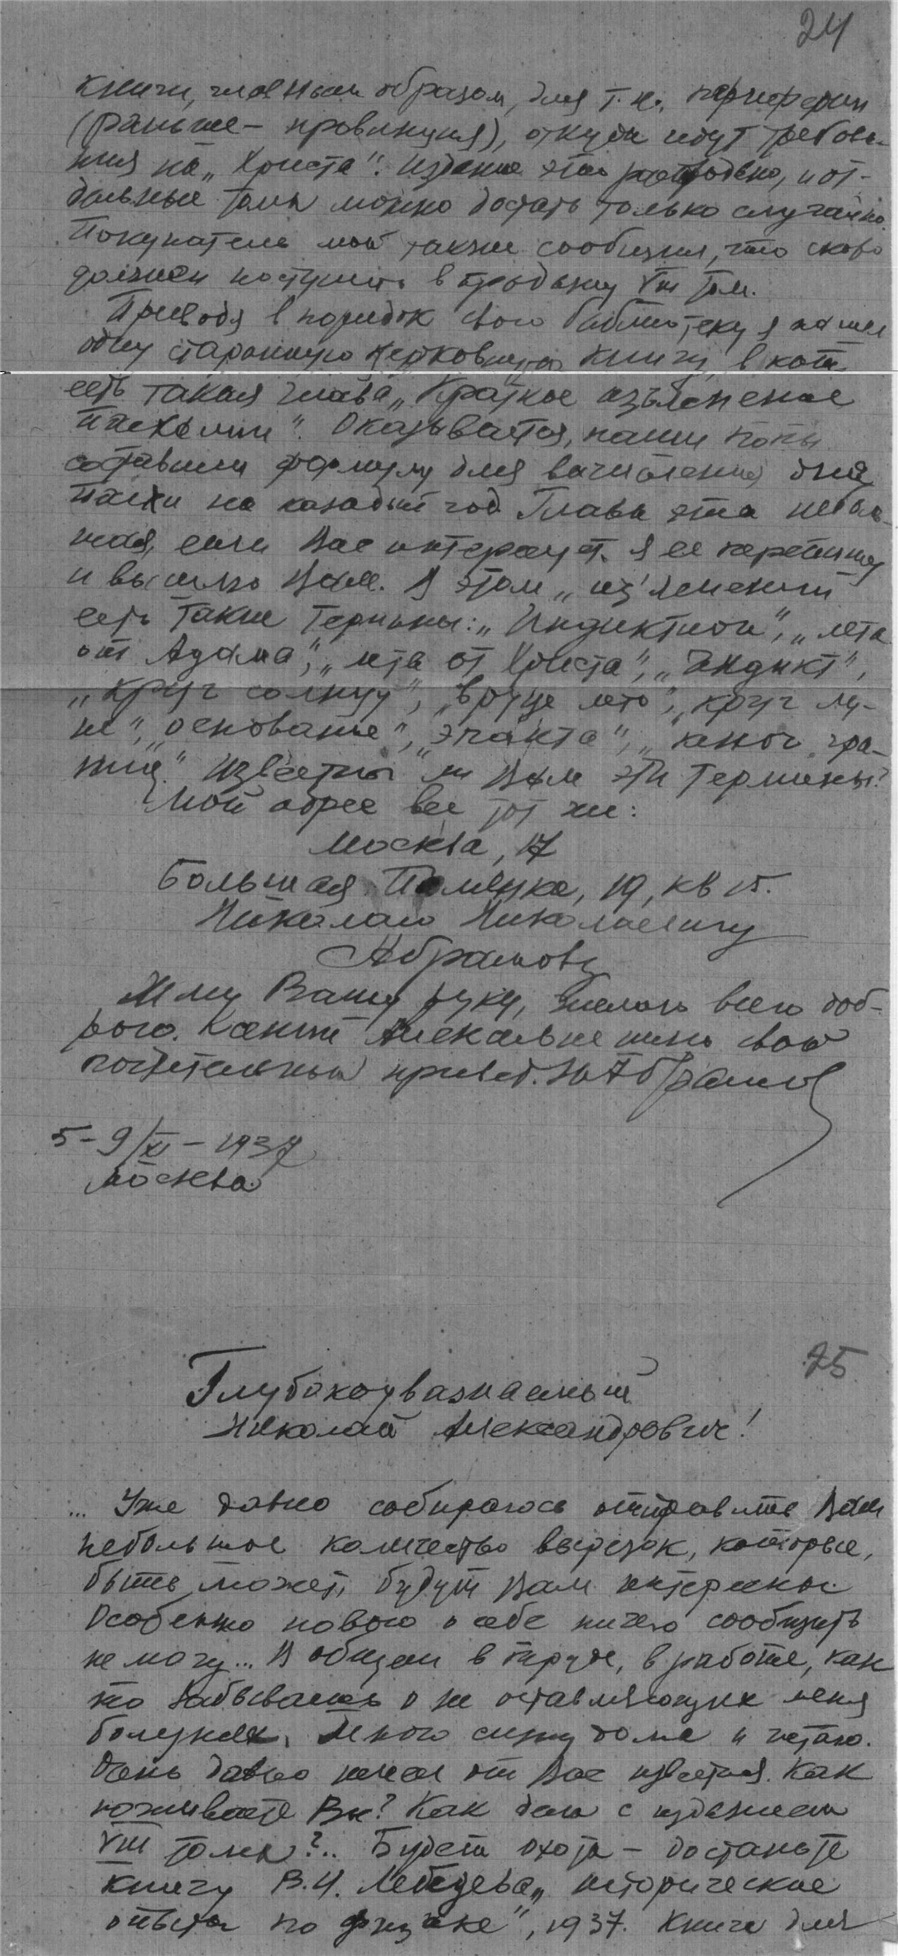 24
книги, главным образом, для т.н. периферии
(раньше – провинция), откуда идут требова-
ния на „Христа“. Издание это распродано, и от-
дельные тома можно достать только случайно.
Покупатель мой также сообщил, что скоро
должен поступить в продажу VIII том.
Приводя в порядок свою библиотеку я нашел
одну старинную церковную книгу, в кот.
есть такая глава „Краткое изъяснение
пасхалии“. Оказывается, наши попы
составили формулу для вычисления дня
Пасхи на каждый год. Глава эта неболь-
шая, если Вас интересует. я ее перепишу
и вышлю Вам. В этом „изъяснении
есть такие термины: „Индиктион“, „лета
от Адама“, „лета от Христа“, „индикт“,
„круг солнцу“, „вруце лето“, „круг лу-
не“, „основание“, „эпакта“, „ключ гра-
ниц.“ Известны ли Вам эти термины?
Мой адрес все тот же:
Москва, 17
Большая Полянка, 19, кв 15.
Николаю Николаевичу
Абрамову
Жму Вашу руку, желаю всего доб-
рого. Ксении Алексеевне шлю свой
почтительный привет. НАбрамов
5–9/XI–1937
Москва
25
Глубокоуважаемый
Николай Александрович!
... Уже давно собираюсь отправить Вам
небольшое количество вырезок, которые,
быть может, будут Вам интересны.
Особенно нового о себе ничего сообщить
не могу... В общем в труде, в работе, как
то забываешь о не оставляющих меня
болезнях. Много сижу дома и читаю.
Очень давно не имел от Вас известия. Как
поживаете Вы? Как дела с изданием
VIII тома?.. Будет охота – достаньте
книгу В.И. Лебедева „Исторические
опыты по физике“, 1937. Книга для